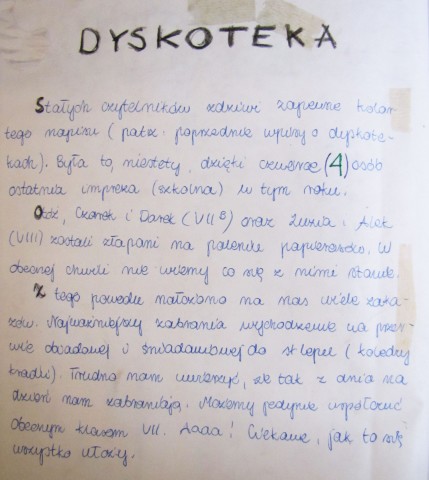 DYSKOTEKA
Stałych czytelników zdziwi zapewne kolor
tego napisu (patrz: poprzednie wpisy o dyskote-
kach). Była to, niestety, dzięki czwórce (4) osób
ostatnia impreza (szkolna) w tym roku.
Otóż, Czarek i Darek (VII B) oraz i Alek
(VIII) zostali złapani na paleniu papierosów. W
obecnej chwili nie wiemy co się z nimi stanie.
Z tego powodu nałożono na nas wiele zaka-
zów. Najważniejszy zabrania wychodzenia na przer-
wie obiadowej i śniadaniowej do sklepu (koledzy
kradli). Trudno nam uwierzyć, że tak z dnia na
dzień nam zabraniają. Możemy jedynie współczuć
obecnym klasom VII. Aaaa! Ciekawe, jak to się
wszystko ułoży.